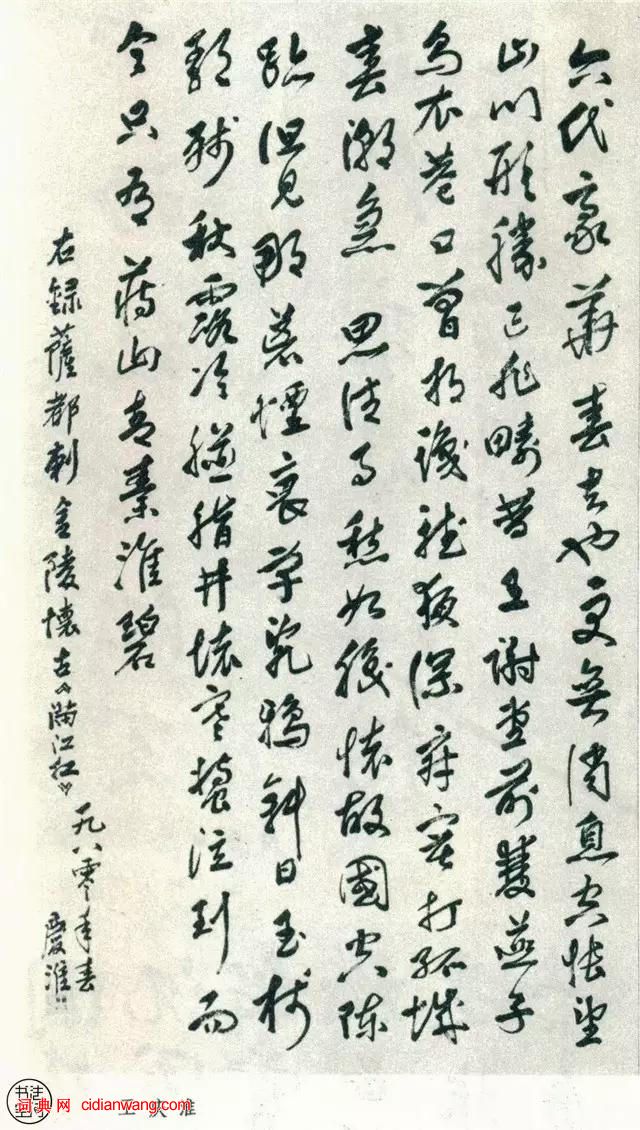 六代豪華春去也更無消息空悵望
山川形勝已非疇昔王謝堂前雙燕子
烏衣巷口曾相識聽夜深寂寞打孤城
春潮急 思往事愁如織懷故國空陳
跡但見那荒煙衰草亂鴉斜日玉樹
歌殘秋露冷胭脂井壞寒螀泣到而
今只有蔣山青秦淮碧
右録薩都剌金陵懷古《滿江紅》
一九八零年春
慶淮
王庆淮
词典网 cidianwang.com